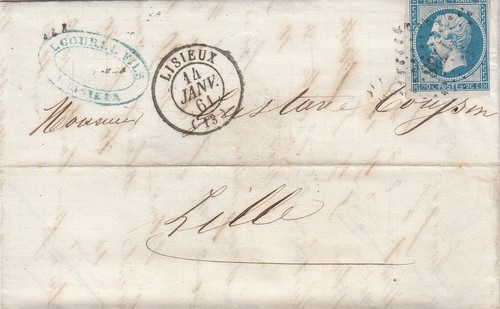 L. COUREL FILS
LISIEUX
LISIEUX
14
JANV.
61
(13)
EMPIRE FRANC.
20 c. POSTES 20 c.
Monsieur Gustave
Lille